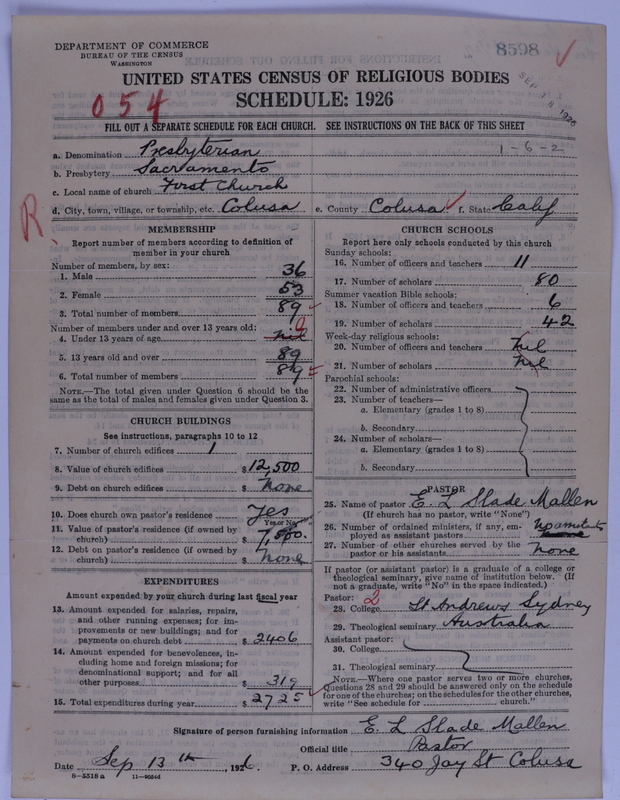 DEPARTMENT OF COMMERCE
BUREAU OF THE CENSUS
WASHINGTON
8598
UNITED STATES CENSUS OF RELIGIOUS BODIES
SCHEDULE: 1926
054
SEP 18 1926
FILL OUT A SEPARATE SCHEDULE FOR EACH CHURCH. SEE INSTRUCTIONS ON THE BACK OF THIS SHEET
1-6-2
a. Denomination Presbyterian
b. Presbytery Sacramento
c. Local name of church First Church
d. City, town, village, or township, etc. Colusa e. County Colusa f. State Calif
R
MEMBERSHIP
Report number of members according to definition of
member in your church
Number of members, by sex:
1. Male 36
2. Female 53
3. Total number of members 89
Number of members under and over 13 years old:
4. Under 13 years of age nil 0
5. 13 years old and over 89
6. Total number of members 89
NOTE.—The total given under Question 6 should be
same as the total of males and females given under Question 3.
CHURCH BUILDINGS
See instructions, paragraphs 10 to 12
7. Number of church edifices 1
8. Value of church edifices $12,500
9. Debt on church edifices $ None
10. Does church own pastor's residence Yes
Yes or No
11. Value of pastor's residence (if owned by
church) $ 7,500.
12. Debt on pastor's residence (if owned by
church) $ None
EXPENDITURES
Amount expended by your church during last fiscal year
13. Amount expended for salaries, repairs,
and other running expenses; for im-
provements or new buildings; and for
payments on church debt $ 2406
14. Amount expended for benevolences, in-
cluding home and foreign missions; for
denominational support; and for all
other purposes $ 319
15. Total expenditures during year $ 2725
CHURCH SCHOOLS
Report here only schools conducted by this church
Sunday schools:
16. Number of officers and teachers 11
17. Number of scholars 80
Summer vacation Bible schools:
18. Number of officers and teachers 6
19. Number of scholars 42
Week-day religious schools:
20. Number of officers and teachers nil
21. Number of scholars nil
Parochial schools:
22. Number of administrative officers
23. Number of teachers—
a. Elementary (grades 1 to 8)
b. Secondary
24. Number of scholars—
a. Elementary (grades 1 to 8)
b. Secondary
PASTOR
25. Name of pastor E. L Slade Mallen
(If church has no pastor, write "None")
26. Number of ordained ministers, if any, em-
ployed as assistant pastors No assistants
27. Number of other churches served by the
pastor or his assistants None
If pastor (or assistant pastor) is a graduate of a college or
theological seminary, give name of institution below. (If
not a graduate, write "No" in the space indicated.)
Pastor: 2
28. College St Andrews Sydney
29. Theological seminary Australia
Assistant pastor:
30. College
31. Theological seminary
NOTE.—Where one pastor serves two or more churches,
Questions 28 and 29 should be answered only on the schedule
for one of the churches; on the schedules for the other churches,
write "See schedule for church."
Signature of person furnishing information E. L Slade Mallen
Official title Pastor
Date Sep 13th, 1926. P. O. Address 340 Jay St Colusa
8—5518 a